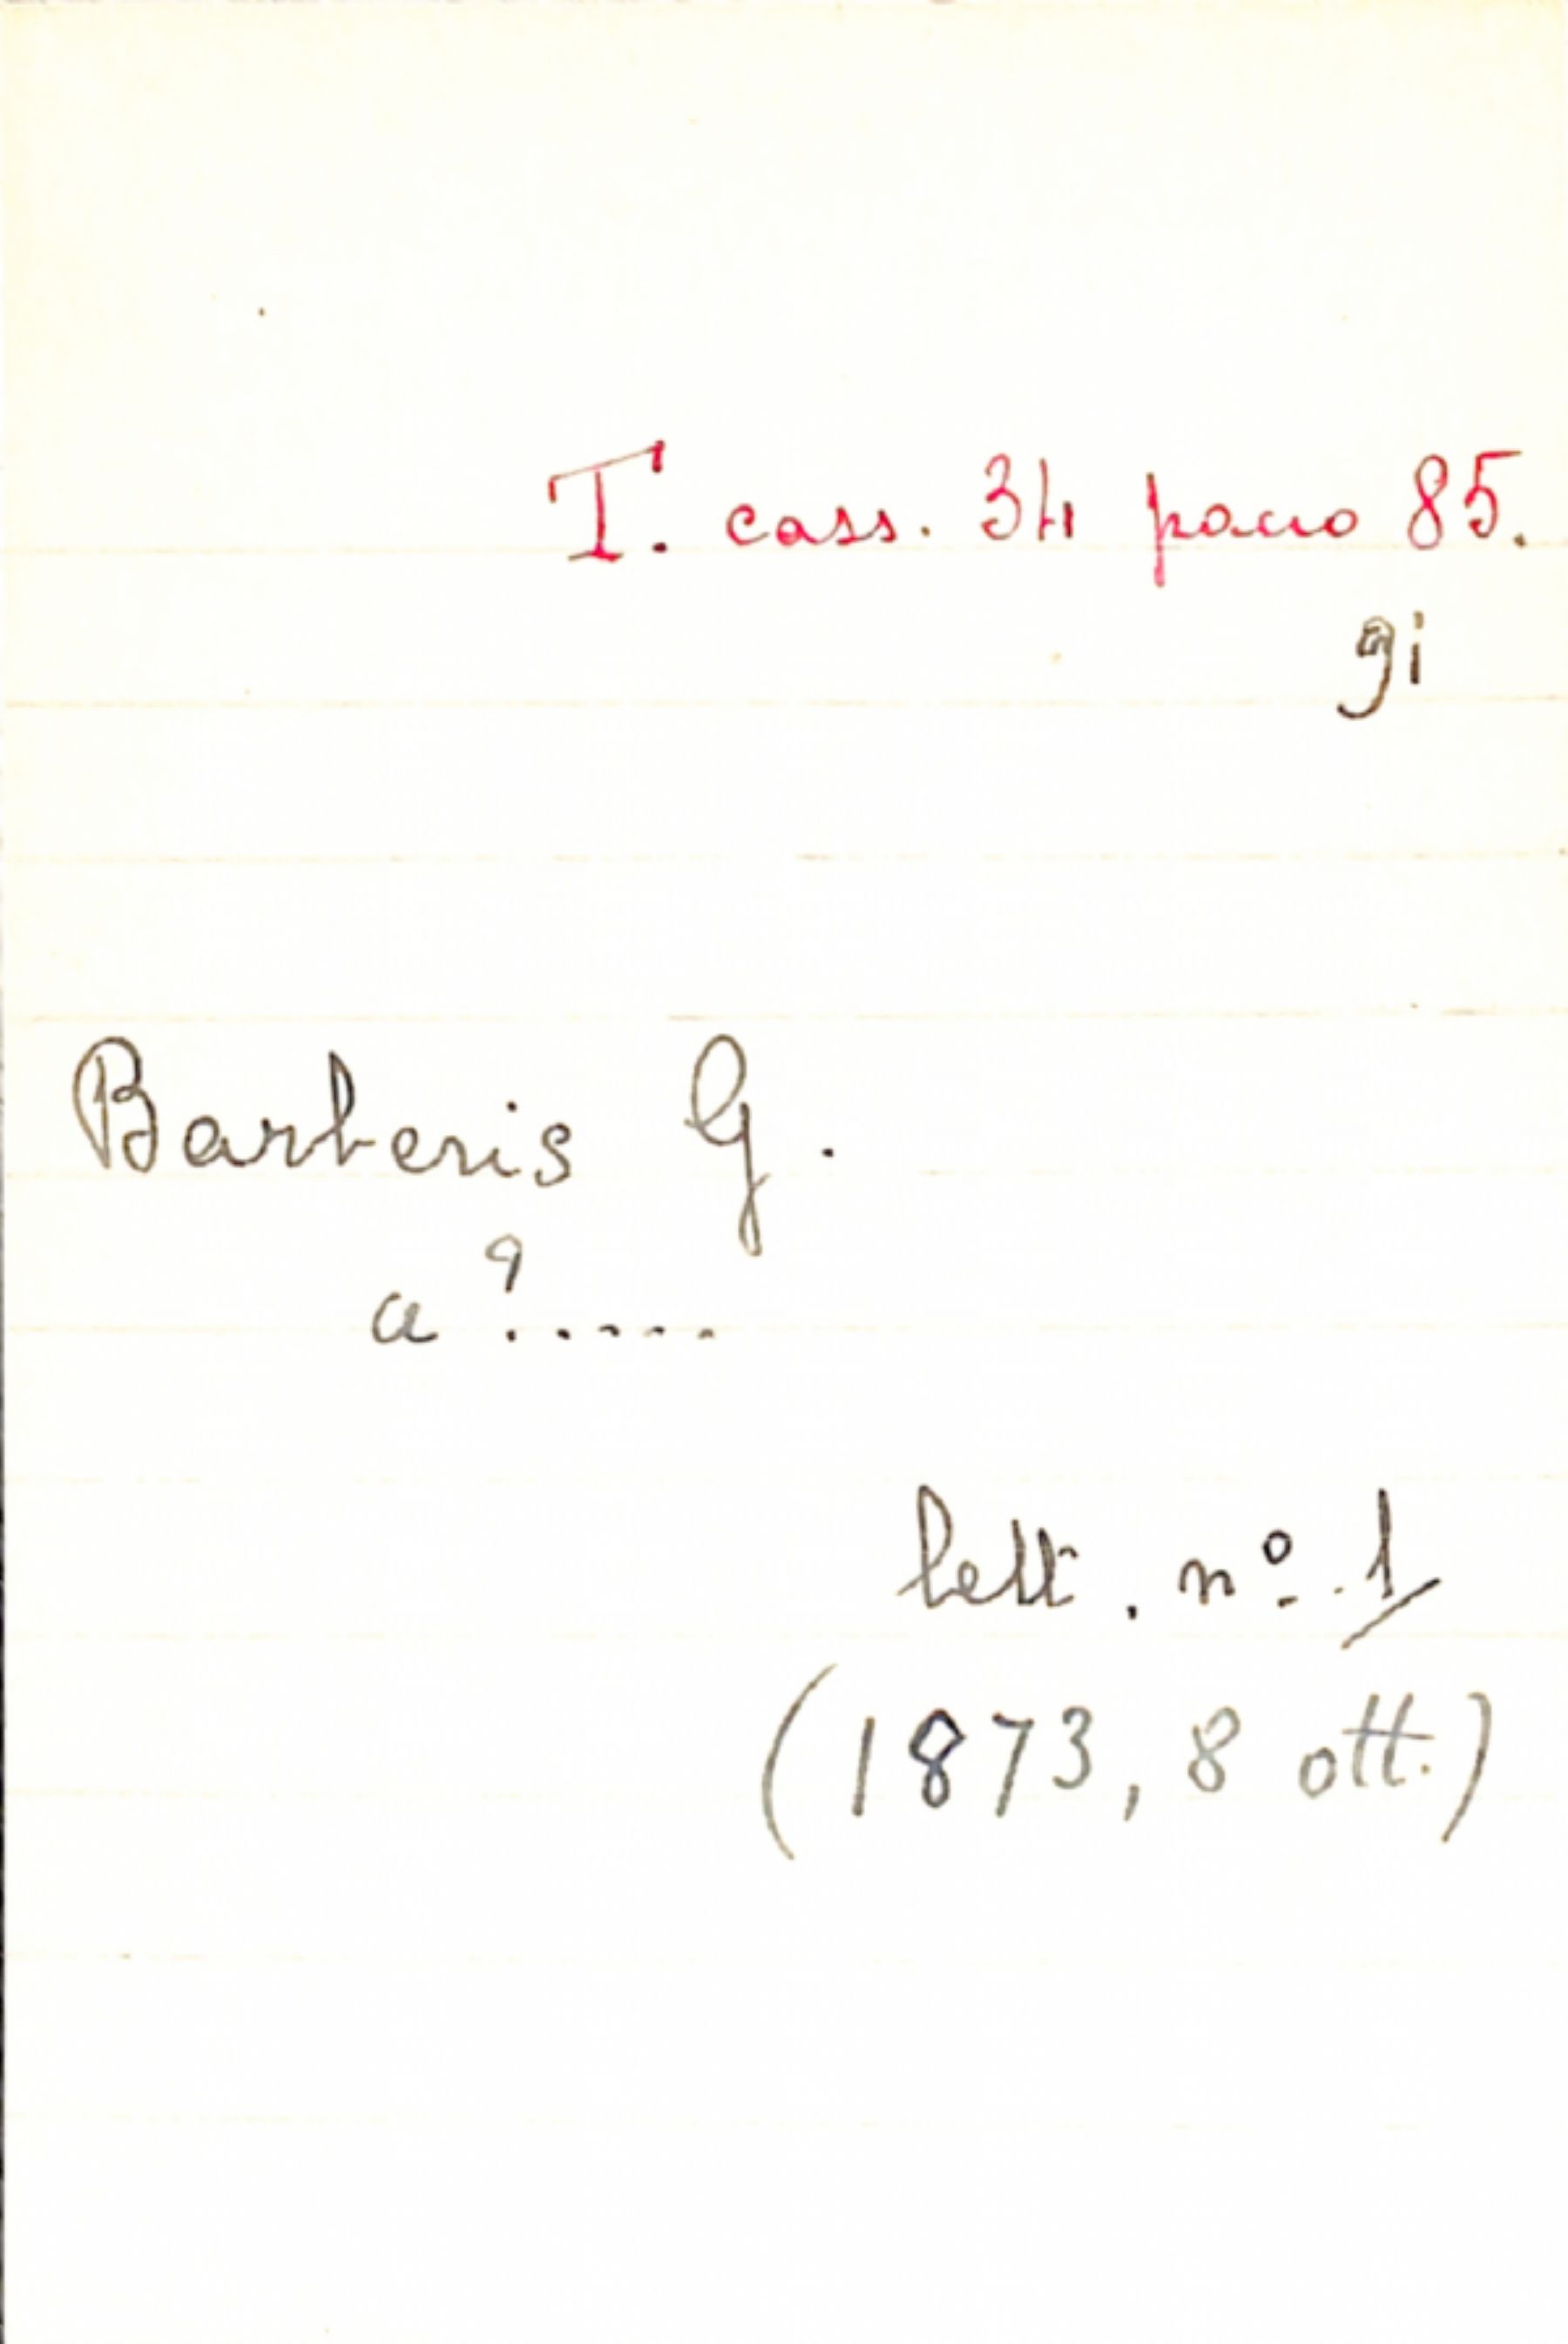 T. cass. 34 pacco 85.
9i
Barberis G.
a ?.....
lett. nº. 1
(1873, 8 ott.)